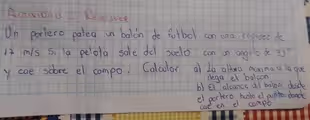 Un portero patea un balón de futbol con una rapidez de
17 m/s si la pelota sale del suelo con un angulo de
y cae sobre el campo. Calcular a) La altura maxima a la que
llega el balon
b) El alcance del balon desde
el portero hasta el punto donde
cae en el campo